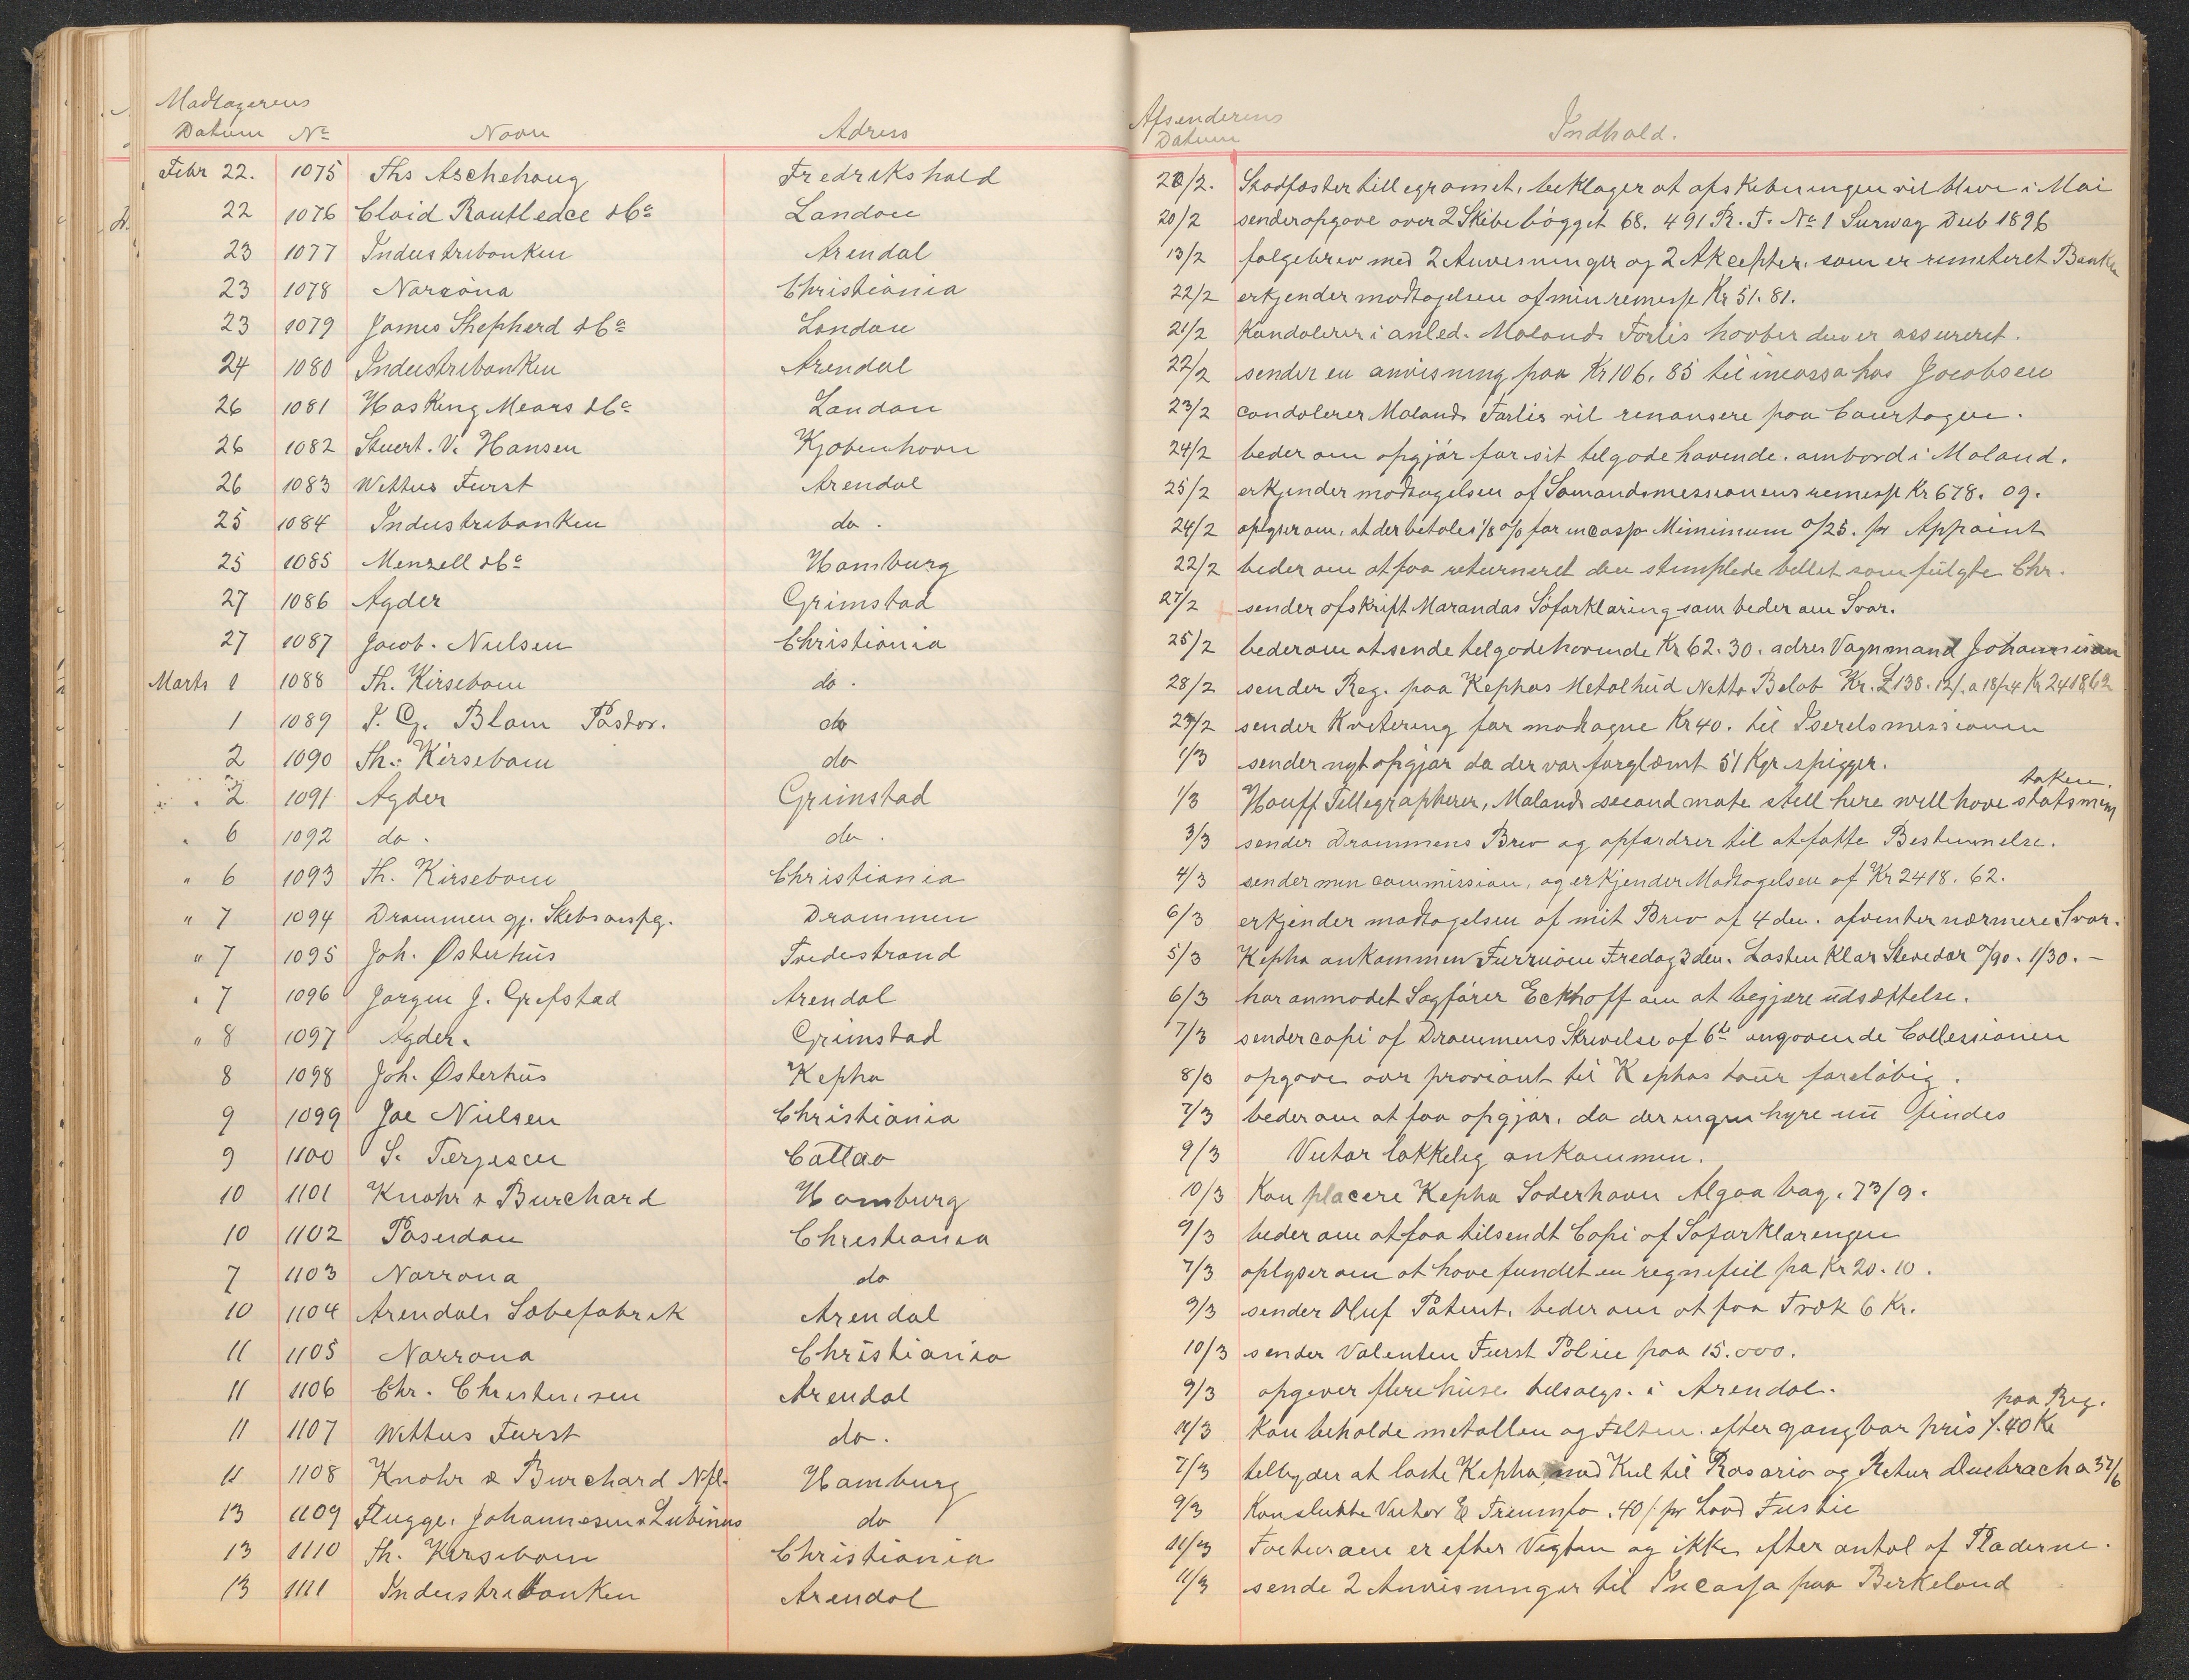 Modtagerens Afsenderens
Datum No Navn Adress Datum Indhold.
Febr 22. 1075 Ths Aschehoug Fredrikshald 20/2. Stadfæster tillegramet, beklager at afskibningen vil blive i Mai
22 1076 Cloid Routledce & Co London 20/2 sender opgave over 2 Skibe bögget 68. 491 R. T. No 1 Surway Dub 1896
23 1077 Industribanken Arendal 13/2 følgebrev med 2 Anvisninger og 2 Akcepter, som er remeteret Banken
23 1078 Norröna Christiania 22/2 erkjender modtagelsen af min remesse Kr 51.81.
23 1079 James Shepherd & Co London 21/2 Kondolerer i anled. Molands Forlis haaber den er assureret.
24 1080 Industribanken Arendal 22/2 sender en anvisning paa Kr 106.85 til incasso hos Jacobsen
26 1081 Hosking Mears & Co London 23/2 condolerer Molands Forlis vil renansere paa Courtagen.
26 1082 Stuert. V. Hansen Kjobenhavn 24/2 beder om opgjör for sit tilgodehavende. ombord i Moland.
26 1083 Wettus Furst Arendal 25/2 erkjender modtagelsen af Sømandsmissionens remesse Kr 678.09.
25 1084 Industribanken do. 24/2 oplyser om, at der betales 1/8 % for incasso Mimimum 0/25. pr Appoint
25 1085 Menzell & Co Hamburg 22/2 beder om at faa returneret den stemplede bellet som fulgte Chr.
27 1086 Agder Grimstad 27/2 sender afskrift Marandas Söforklaring som beder om Svar.
27 1087 Jacob. Nielsen Christiania 25/2 beder om at sende tilgodehavende Kr 62.30. adres Vognmand Johannisen
Marts 1 1088 Th. Kirsebom do. 28/2 sender Reg. paa Kephas Metalhud Netto Beløb Kr. £138.12/. a 18/24 Kr 2418,62
1 1089 T. G. Blom Pastor. do 27/2 sender Kvitering for modtagne Kr 40. til Iserelsmissionen
2 1090 Th. Kirsebom do 1/3 sender nyt opgjör da der var forglæmt 51 Kgr spigger.
taken.
2 1091 Agder Grimstad 1/3 Hauff Tellegrapherer, Molands second mate stell here will have statsmen
" 6 1092 do. do. 3/3 sender Drammens Brev og opfordrer til at fatte Bestemmelse.
" 6 1093 Th. Kirsebom Christiania 4/3 sender min commission, og erkjender Modtagelsen af Kr 2418.62.
" 7 1094 Drammen gj. Skibsanspg. Drammen 6/3 erkjender modtagelsen af mit Brev af 4 den. afventer nærmere Svar.
" 7 1095 Joh. Østerhus Tvedestrand 5/3 Kepha ankommen Furrüöen Fredag 3 den. Lasten Klar Stevedor 0/90. 1/30.-
" 7 1096 Jørgen J. Grefstad Arendal 6/3 har anmodet Sagfører Eckhoff om at begjære udsættelse.
" 8 1097 Agder. Grimstad 7/3 sender copi af Drammens Skrivelse af 6te angaaende Collessionen
8 1098 Joh. Østerhus Kepha 8/3 opgave over proviant til Kephas tour foreløbig.
9 1099 Joe Nielsen Christiania 7/3 beder om at faa opgjör, da der ingen hyre nu findes
9 1100 S. Terjesen Callao 9/3 Victor lakkelig ankommen.
10 1101 Knohr & Burchard Hamburg 10/3 Kan placere Kepha Soderhavn Algoa bay. 73/9.
10 1102 Poseidon Christiania 9/3 beder om at faa tilsendt Copi af Söforklaringen
7 1103 Norrona do 7/3 oplyser om at have fundet en regnefeil pa Kr 20.10.
10 1104 Arendals Sæbefabrik Arendal 9/3 sender Oluf Patent, beder om at faa Træk 6 Kr.
11 1105 Norrona Christiania 10/3 sender Valenten Furst Police paa 15.000.
11 1106 Chr. Christensen Arendal 9/3 opgever flere huse telsalgs. i Arendal.
paa Reg.
11 1107 Wettus Furst do. 11/3 Kan beholde metallen og Felten. efter gangbar pris /.40 Kr
11 1108 Knohr & Burchard Nfl. Hamburg 7/3 telbyder at laste Kepha med Kul til Rosario og Retur Quebracha 37/6
13 1109 Flugge, Johannesen & Lubinus do 9/3 Kan slutte Victor El Treumfo. 40/ pr Load Fustie
13 1110 Th. Kirsebom Christiania 11/3 Facturaen er efter Vægten og ikke efter antal af Pladerne.
13 1111 Industribanken Arendal 11/3 sende 2 Anvisninger til Incasso paa Berkeland